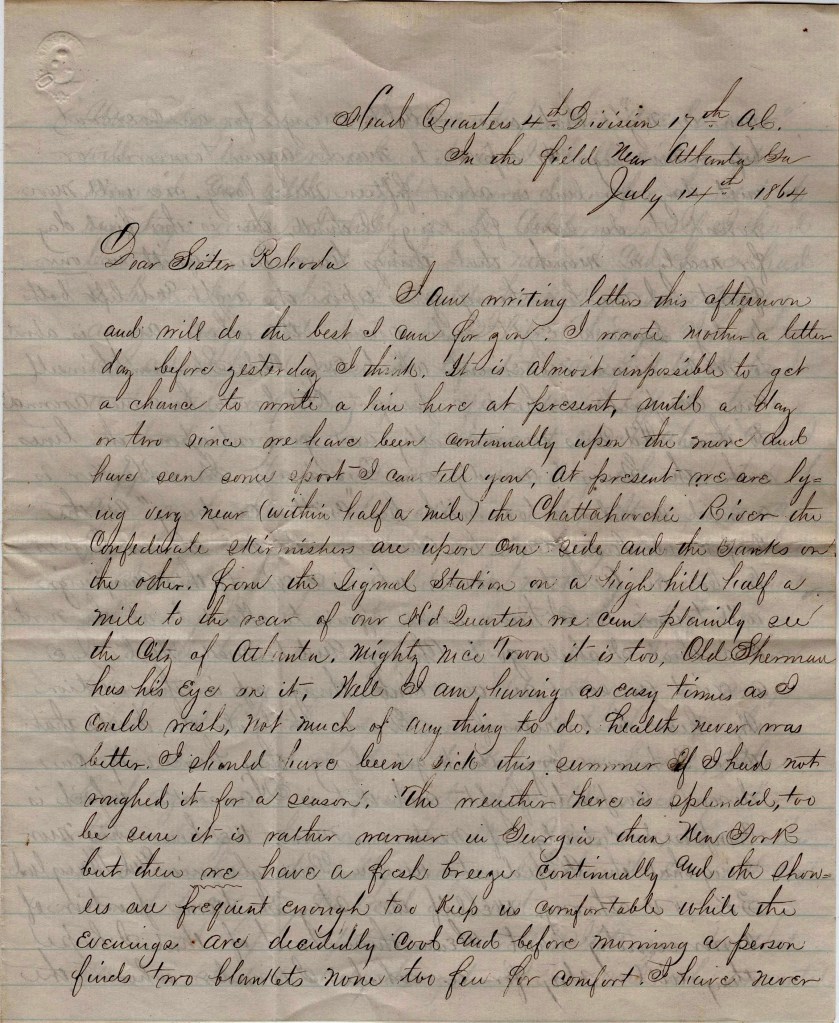 Head Quarters 4th Division 17th A.C.
In the field Near Atlanta Ga
July 14th 1864
Dear Sister Rhoda
I am writing letters this afternoon
and will do the best I can for you. I wrote mother a letter
day before yesterday I think. It is almost impossible to get
a chance to write a line here at present, until a day
or two since we have been continually upon the move and
have seen some sport I can tell you, at present we are ly=
ing very near (within half a mile) the Chattahoochie River the
Confederate skirmishers are upon one side and the Yanks on
the other. from the Signal Station on a high hill half a
mile to the rear of our Hd Quarters we can plainly see
the City of Atlanta. mighty nice Town it is too, Old Sherman
has his Eye on it, Well I am having as easy times as I
could wish, not much of any thing to do. health never was
better. I should have been sick this summer If I had not
roughed it for a season. The weather here is splendid, too
be sure it is rather warmer in Georgia than New York
but then we have a fresh breeze continually and the show=
ers are frequent enough too Keep us comfortable while the
Evenings are decididly cool and before morning a person
finds two blankets none too few for comfort. I have never